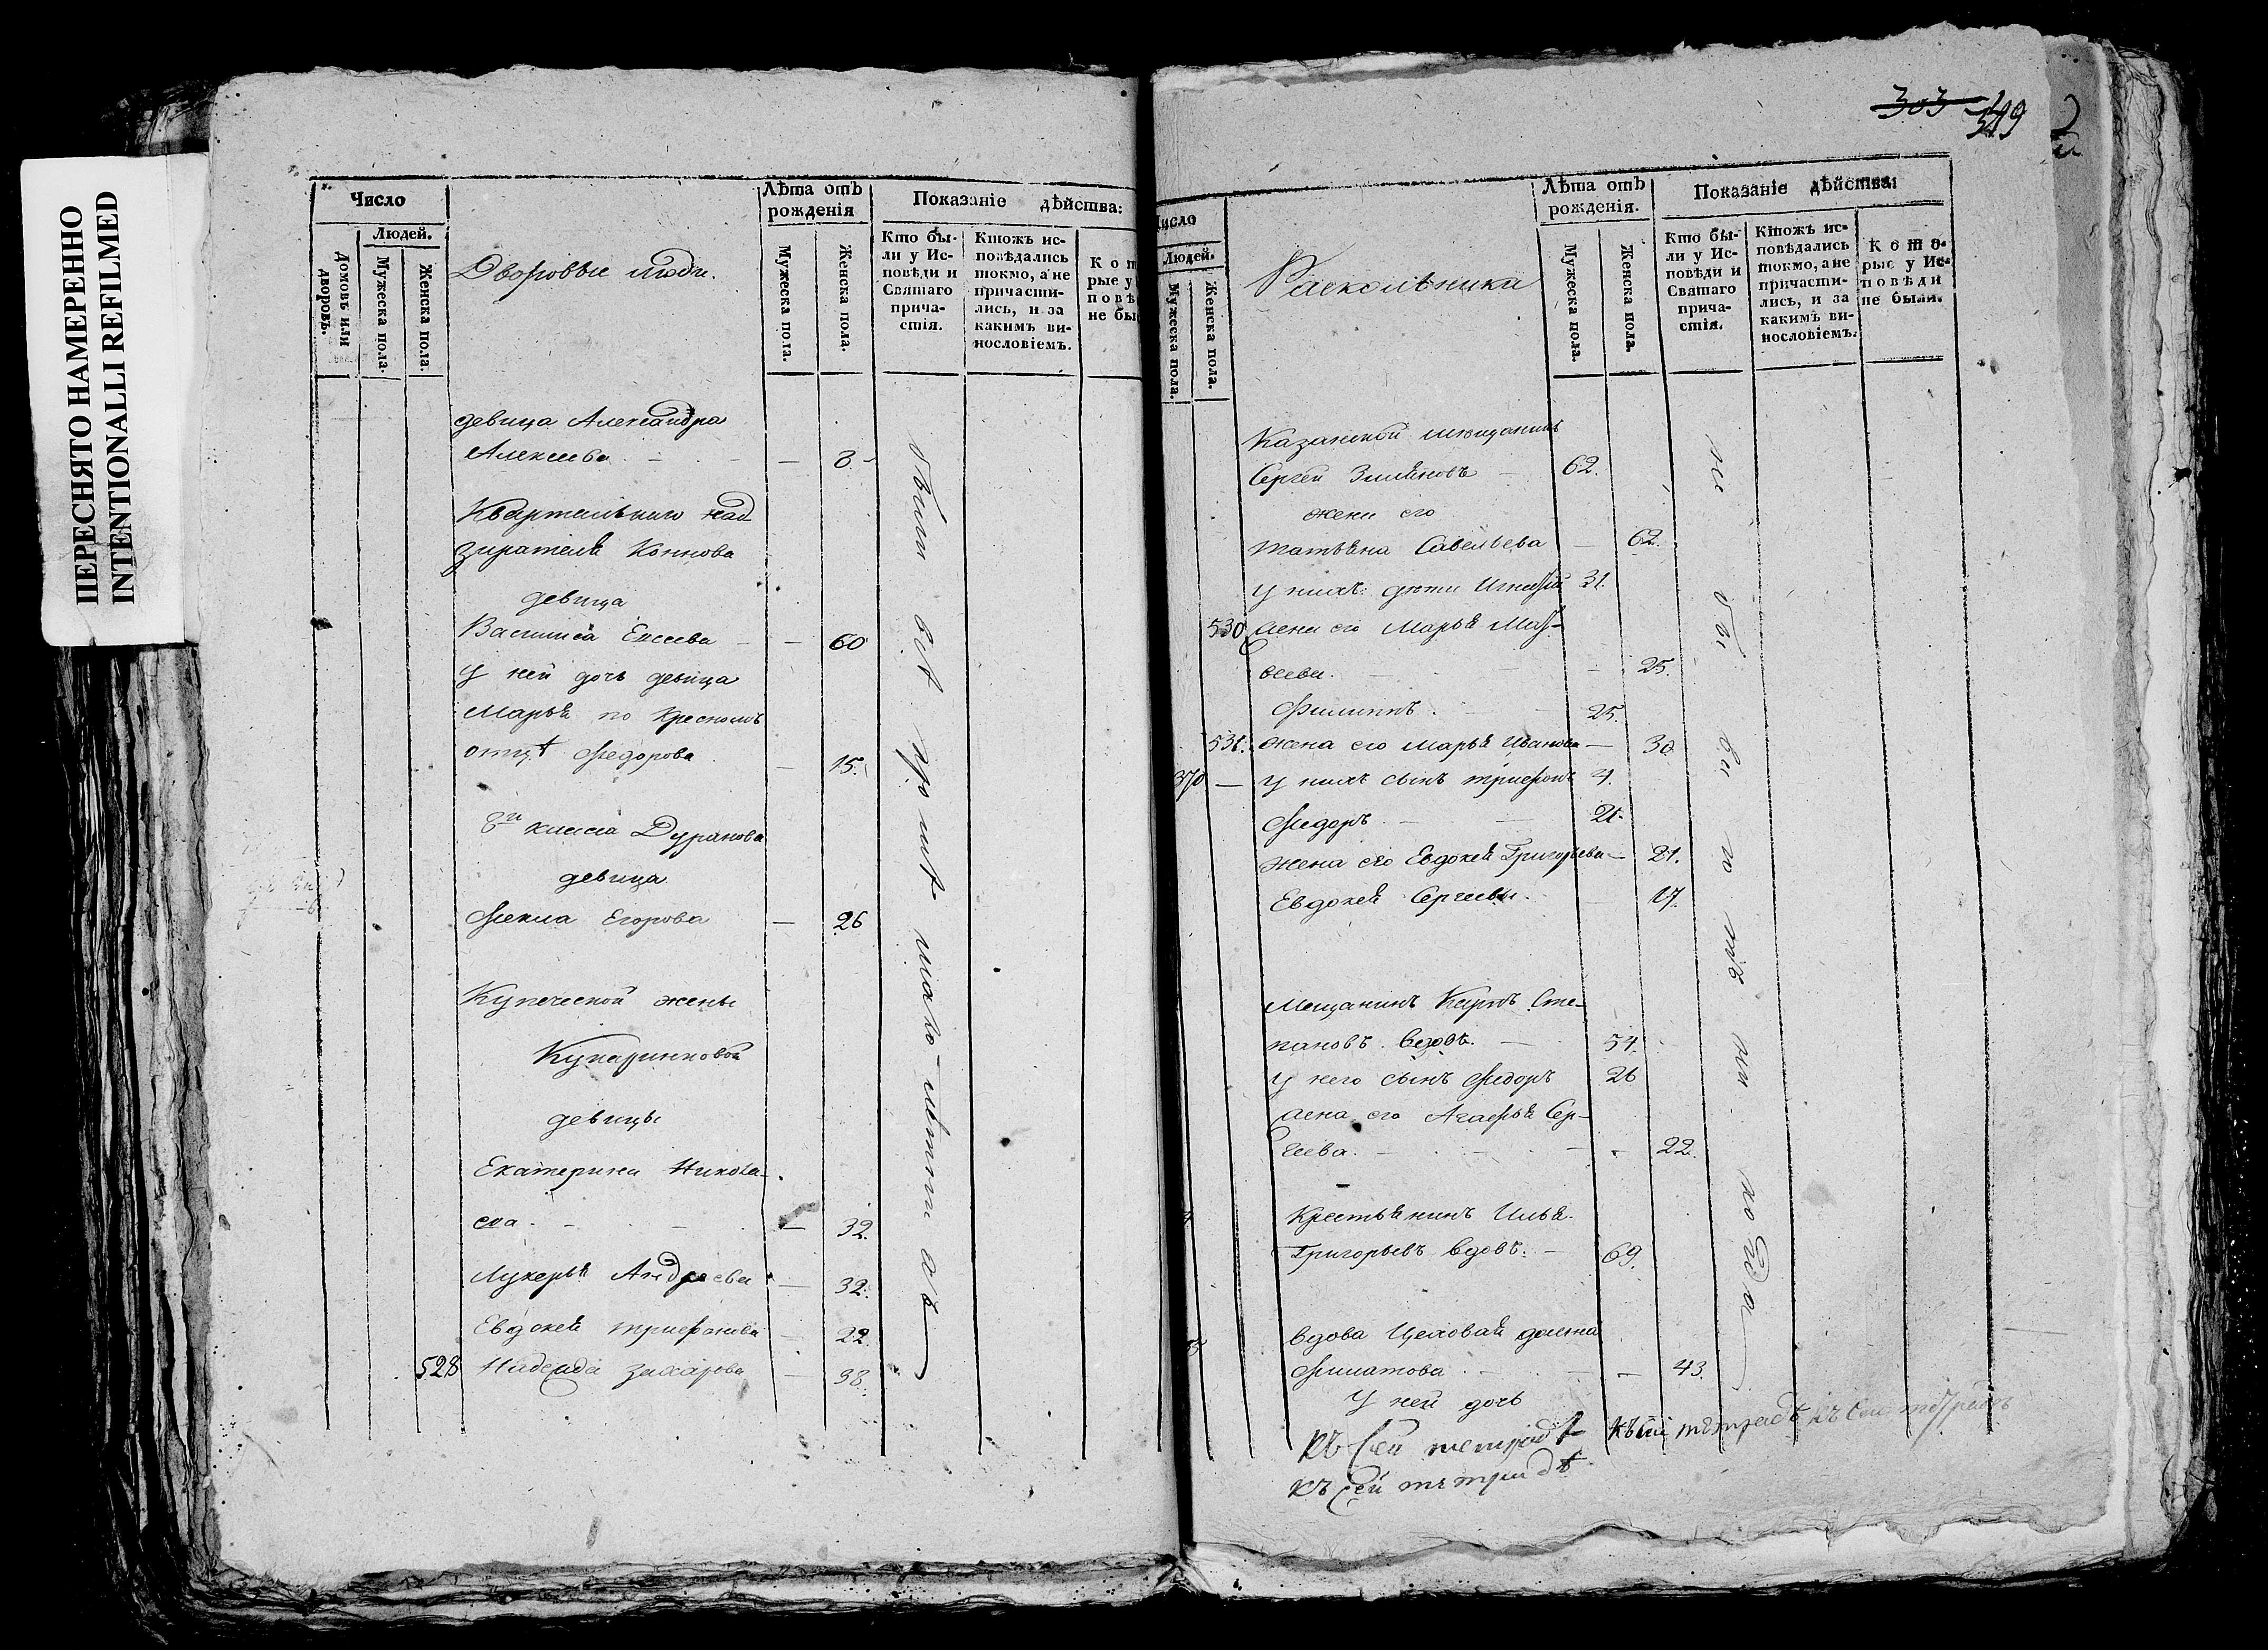 ПЕРЕСНЯТО НАМЕРЕННО
INTENTIONALLI REFILMED
Число
Людей.
Домовъ или дворовъ.
Мужеска пола.
Женска пола.
Дворовые люди.
Лѣта отъ рожденія
Мужеска пола.
Женска пола.
Показаніе дѣйства:
Кто бы-
ли у Ис-
повѣди и
Святаго
прича-
стія.
Ктожъ ис-
повѣдались
токмо, а не
причасти-
лись, и за
какимъ ви-
нословіемъ.
К о т
рые у
п о в ѣ
не бы
девица Александра
Алексеева — 8.
Квартальнаго над
зирателя Коннова
девица
Василиса Евсеева — 60
У ней дочь девица
Марья по кресному
отцѣ Федорова — 15.
8го класса Дуранова
девица
Фекла Егорова — 26
Купеческой жены
девицы
Екатерина Никола
ева — 32.
Лукерья Андреева — 32.
Евдокея Трифонова — 22.
528 Надежда Захарова — 38.
были всѣ
303 349
Число
Людей.
Мужеска пола.
Женска пола.
Раскольники
Лѣта отъ рожденія.
Мужеска пола.
Женска пола.
Показаніе дѣйства:
Кто бы-
ли у Ис-
повѣди и
Святаго
прича-
стія.
Ктожъ ис-
повѣдались
токмо, а не
причасти-
лись, и за
какимъ ви-
нословіемъ.
К о т о-
рые у Ис-
п о в ѣ д и
не были.
Казанской мещанинъ
Сергей 62.
жена его
Татьяна Савельева — 62.
У нихъ дети Игнатій 31.
530 жена его Марья Мат-
веева. — 25.
Филиппъ. 25.
531. жена его Марья Иванова — 30.
370 — У нихъ сынъ Трифонъ 4.
Федоръ 21.
Жена его Евдокея Григорьева — 21.
Евдокея Сергеева. 17.
Мещанинъ Карпъ Сте-
пановъ вдовъ. — 54.
У него сынъ Федоръ 26
жена его Агафья Сер-
геева. — 22.
Крестьянинъ Илья
Григорьевъ вдовъ. — 69.
вдова Цеховая
Филатова — 43.
У ней дочь
къ сей тетрадѣ къ сей тетрадѣ къ сей тетрадѣ
къ сей тетрадѣ